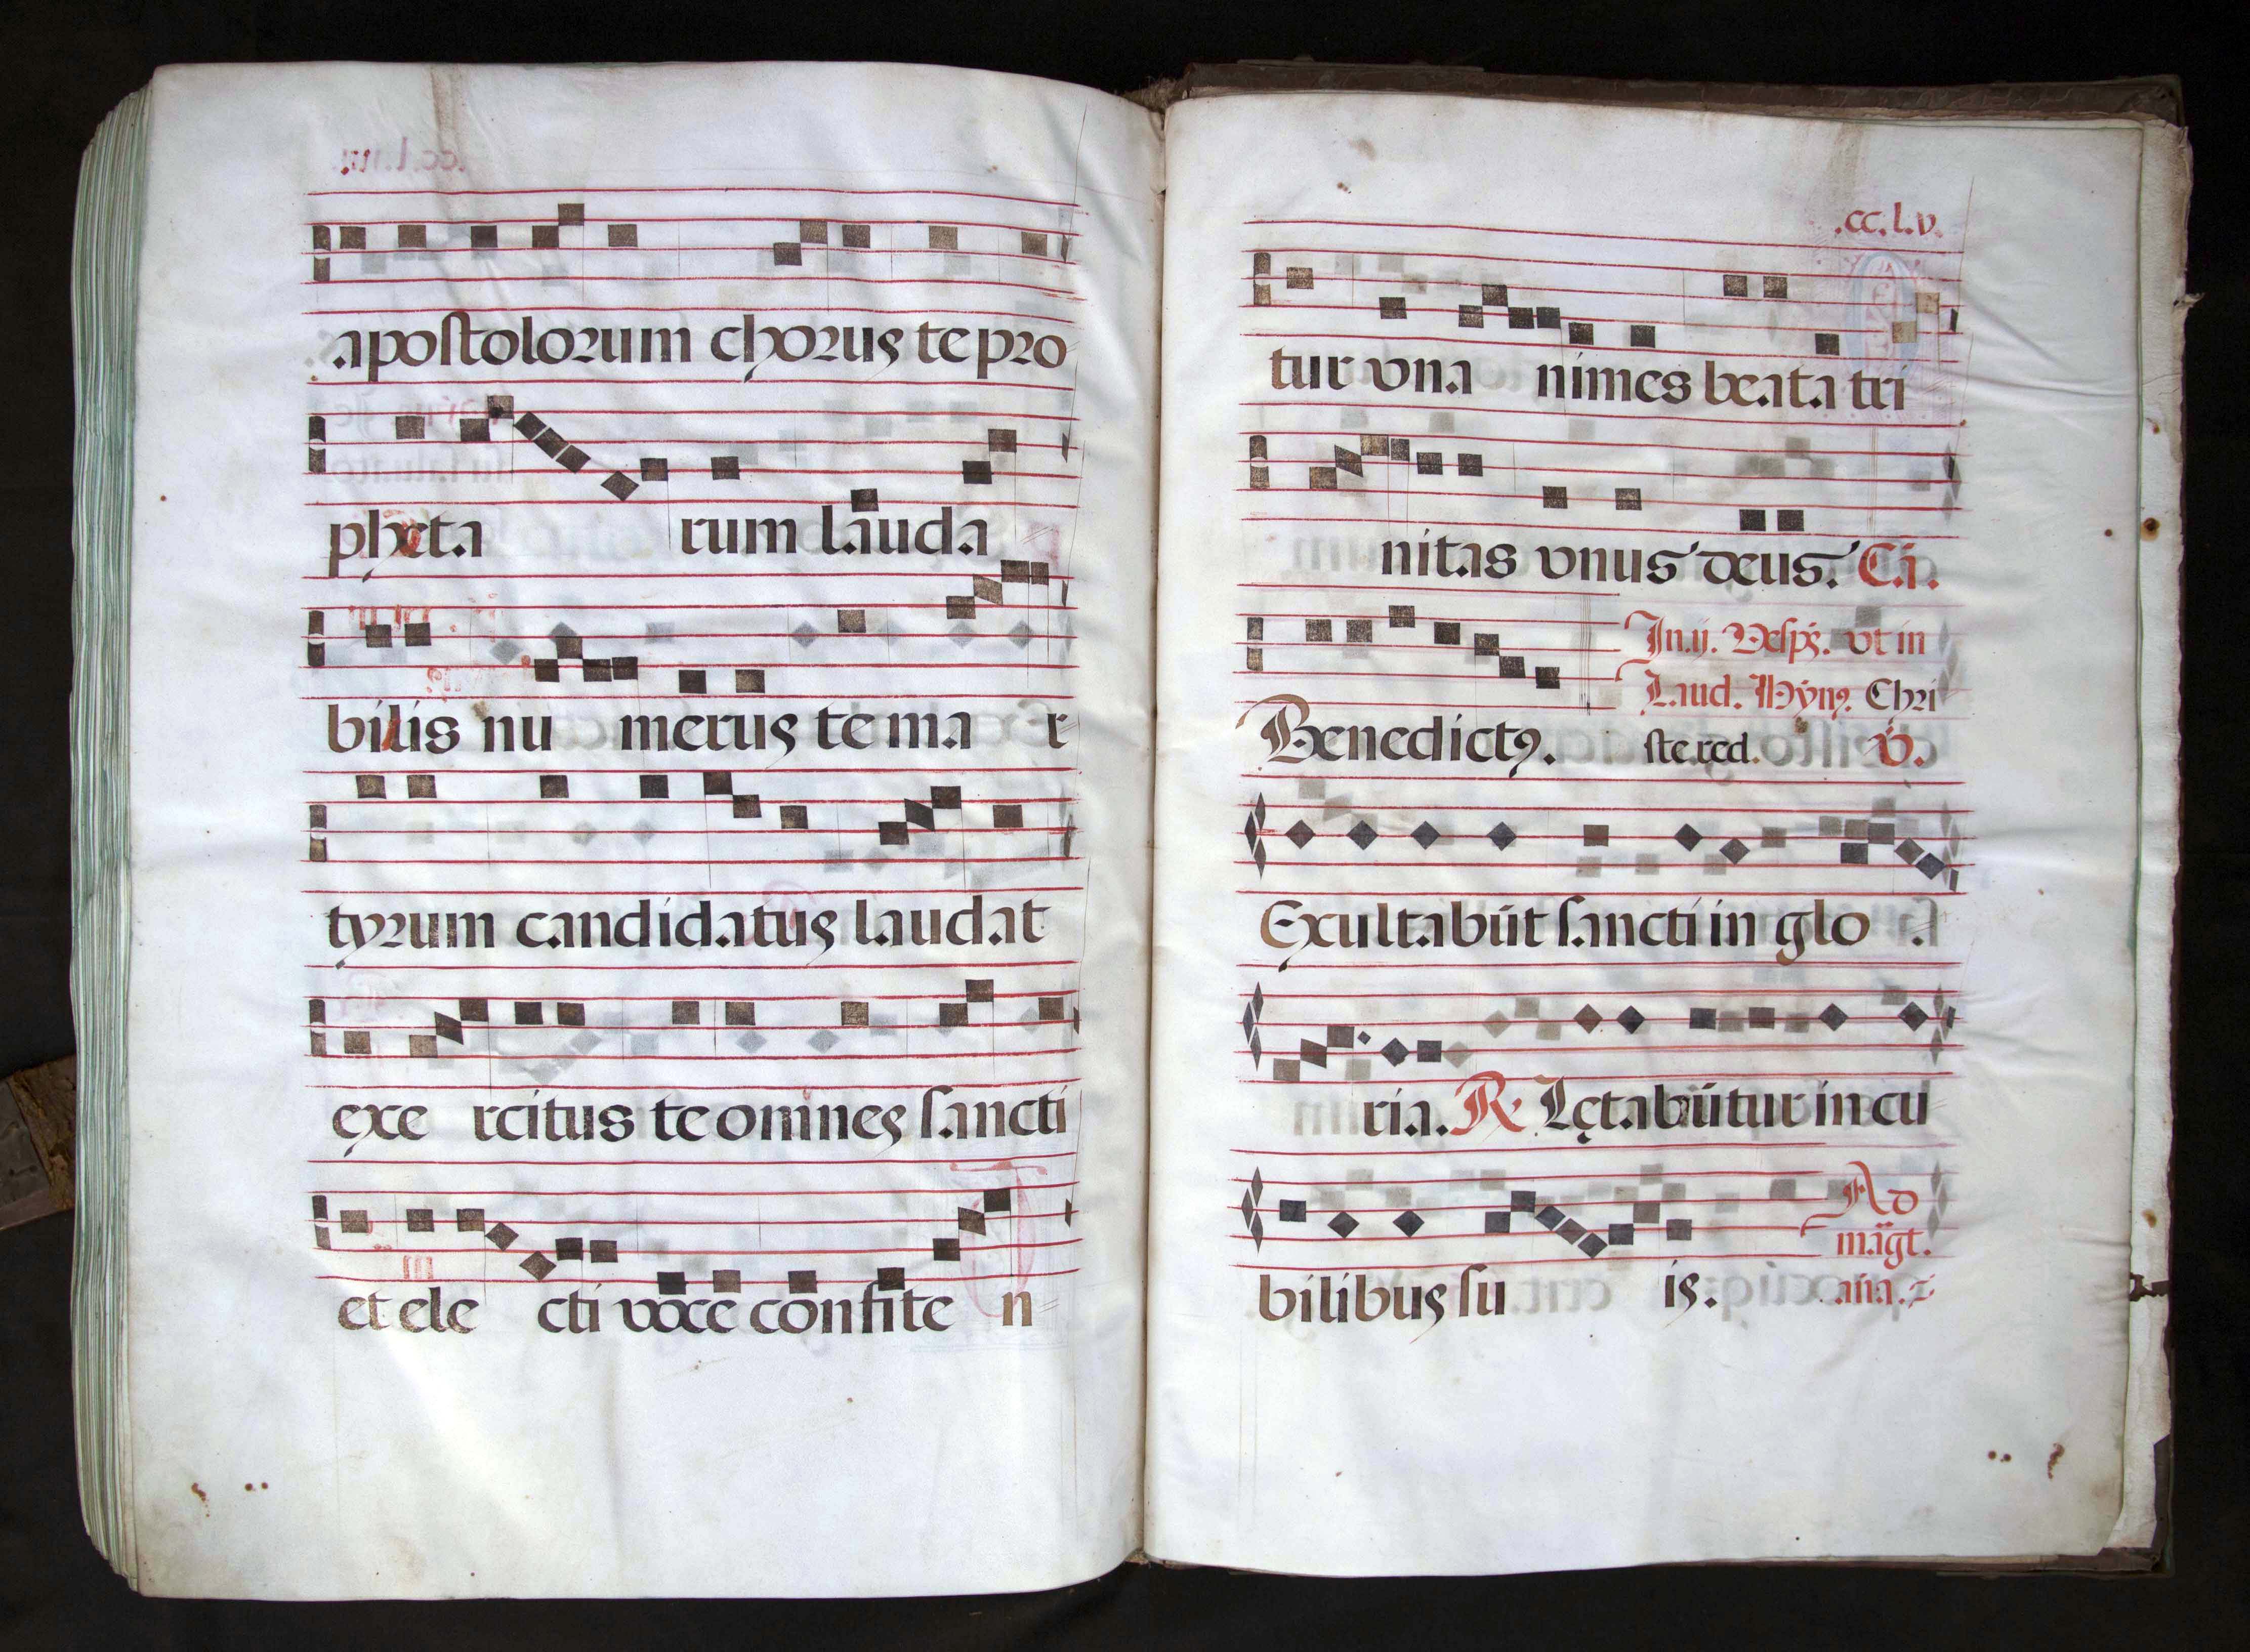 apostolorum chorus te pro
pheta rum lauda
bilis nu merus te ma r
tyrum candidatus laudat
exe rcitus te omnes sancti
et ele cti voce confite n
.cc.l.v.
tur vna nimes beata tri
nitas vnus deus. C.i.
In.ij. Vesp̃. vt in
Laud. Hỹnꝯ. Chri
Benedictꝯ. ste red. v̇.
Exultabūt sancti in glo .
ria. R̷ Lętabūtur in cu
Ad
mağt.
bilibus su is. ana.